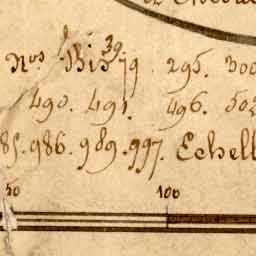 Nos Bis 39 79. 295. 300
490. 491. 496. 502
985. 986. 989. 997. Echell
50 100